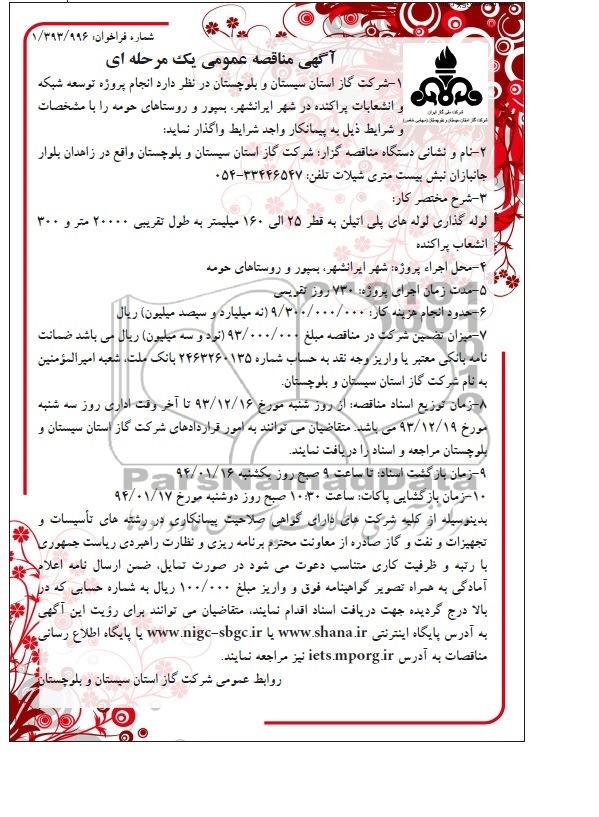 شماره فراخوان: ۱/۳۹۳/۹۹۶
آگهی مناقصه عمومی یک مرحله ای
شرکت ملی گاز ایران
شرکت گاز استان سیستان و بلوچستان (سهامی خاص)
۱-شرکت گاز استان سیستان و بلوچستان در نظر دارد انجام پروژه توسعه شبکه
و انشعابات پراکنده در شهر ایرانشهر، بمپور و روستاهای حومه را با مشخصات
و شرایط ذیل به پیمانکار واجد شرایط واگذار نماید:
۲-نام و نشانی دستگاه مناقصه گزار: شرکت گاز استان سیستان و بلوچستان واقع در زاهدان بلوار
جانبازان نبش بیست متری شیلات تلفن: ۳۳۴۴۶۵۴۷-۰۵۴
۳-شرح مختصر کار:
لوله گذاری لوله های پلی اتیلن به قطر ۲۵ الی ۱۶۰ میلیمتر به طول تقریبی ۲۰۰۰۰ متر و ۳۰۰
انشعاب پراکنده
۴-محل اجراء پروژه: شهر ایرانشهر، بمپور و روستاهای حومه
۵-مدت زمان اجرای پروژه: ۷۳۰ روز تقویمی
۶-حدود انجام هزینه کار: ۹/۳۰۰/۰۰۰/۰۰۰ (نه میلیارد و سیصد میلیون) ریال
۷-میزان تضمین شرکت در مناقصه مبلغ ۹۳/۰۰۰/۰۰۰ (نود و سه میلیون) ریال می باشد ضمانت
نامه بانکی معتبر یا واریز وجه نقد به حساب شماره ۲۴۶۳۲۶۰۱۳۵ بانک ملت، شعبه امیرالمؤمنین
به نام شرکت گاز استان سیستان و بلوچستان.
۸-زمان توزیع اسناد مناقصه: از روز شنبه مورخ ۹۳/۱۲/۱۶ تا آخر وقت اداری روز سه شنبه
مورخ ۹۳/۱۲/۱۹ می باشد. متقاضیان می توانند به امور قراردادهای شرکت گاز استان سیستان و
بلوچستان مراجعه و اسناد را دریافت نمایند.
۹-زمان بازگشت اسناد: تا ساعت ۹ صبح روز یکشنبه ۹۴/۰۱/۱۶
۱۰-زمان بازگشایی پاکات: ساعت ۱۰:۳۰ صبح روز دوشنبه مورخ ۹۴/۰۱/۱۷
بدینوسیله از کلیه شرکت های دارای گواهی صلاحیت پیمانکاری در رشته های تأسیسات و
تجهیزات و نفت و گاز صادره از معاونت محترم برنامه ریزی و نظارت راهبردی ریاست جمهوری
با رتبه و ظرفیت کاری متناسب دعوت می شود در صورت تمایل، ضمن ارسال نامه اعلام
آمادگی به همراه تصویر گواهینامه فوق و واریز مبلغ ۱۰۰/۰۰۰ ریال به شماره حسابی که در
بالا درج گردیده جهت دریافت اسناد اقدام نمایند، متقاضیان می توانند برای رؤیت این آگهی
به آدرس پایگاه اینترنتی www.shana.ir یا www.nigc-sbgc.ir یا پایگاه اطلاع رسانی
مناقصات به آدرس iets.mporg.ir نیز مراجعه نمایند.
روابط عمومی شرکت گاز استان سیستان و بلوچستان
ParsNamadData